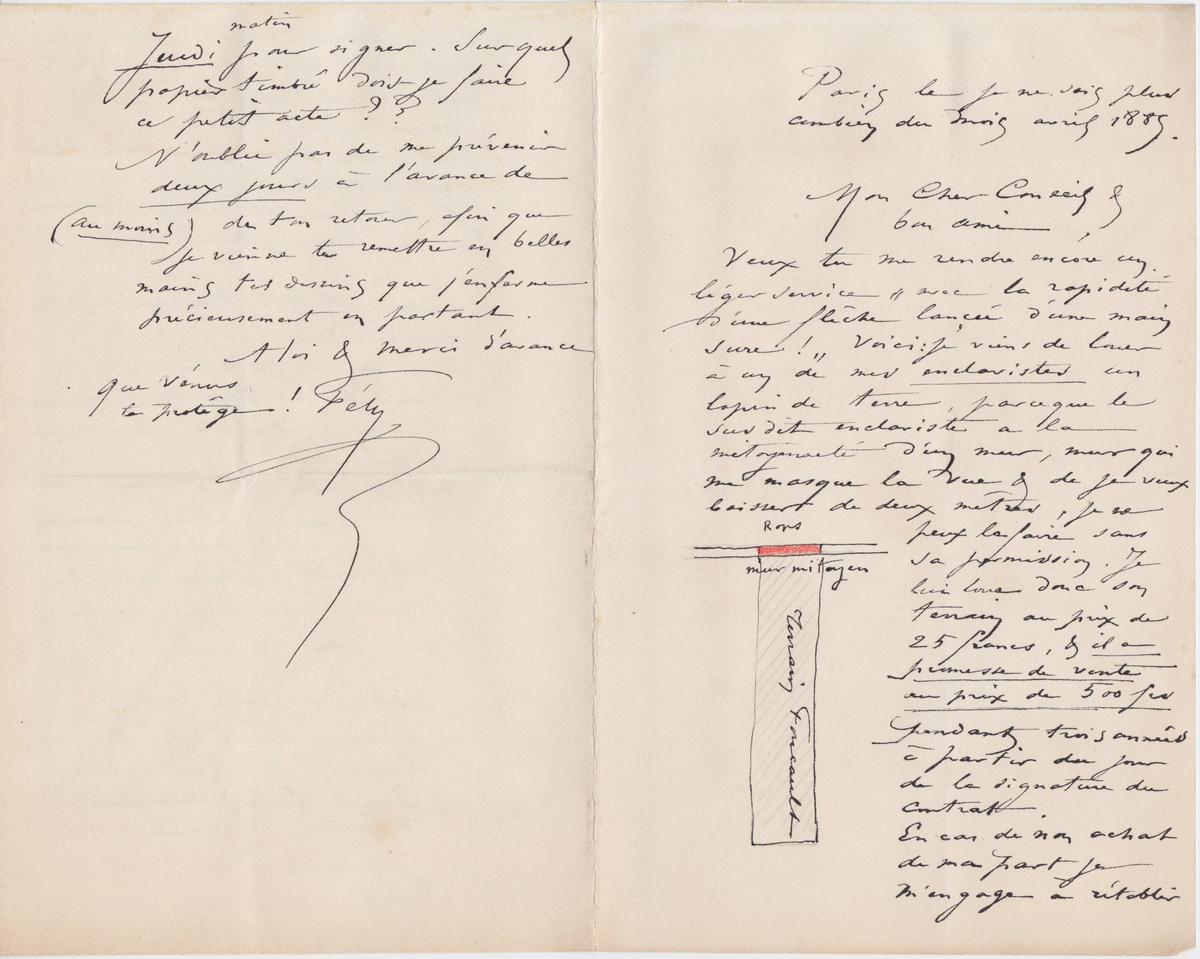 Paris le je ne sais plus
combien du mois avril 1889.
Mon Cher Conseil &
bon ami,
Veux tu me rendre encore un
léger service „ avec la rapidité
d'une flèche lancée d'une main
sure ! „ Voici : je viens de louer
à un de mes enclavistes un
lopin de terre, parceque le
susdit enclaviste a la
mitoyenneté d'un mur, mur qui
me masque la vue & de je veux
baisser de deux mètres, je ne
peux le faire sans
sa permission. Je
lui loue donc son
terrain au prix de
25 francs, & il a
promesse de vente
au prix de 500 frs
pendant trois années
à partir du jour
de la signature du
contrat.
En cas de non achat
de ma part je
m'engage à rétablir
Rops
mur mitoyen
Terrain Foucault
matin
Jeudi pour signer. Sur quel
papier timbré dois-je faire
ce petit acte ? ?
N'oublie pas de me prévenir
deux jours à l'avance de
(au moins) de ton retour, afin que
je vienne te remettre en belles
mains tes dessins que j'enferme
précieusement en partant.
A toi & merci d'avance
que Vénus
te protège ! Fély